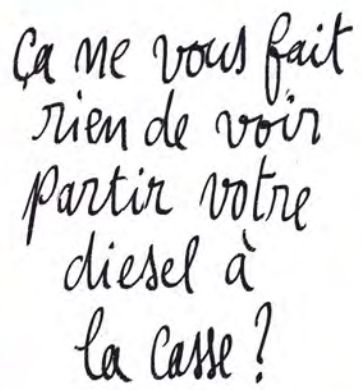 Ça ne vous fait
rien de voir
partir votre
diesel à
la casse ?